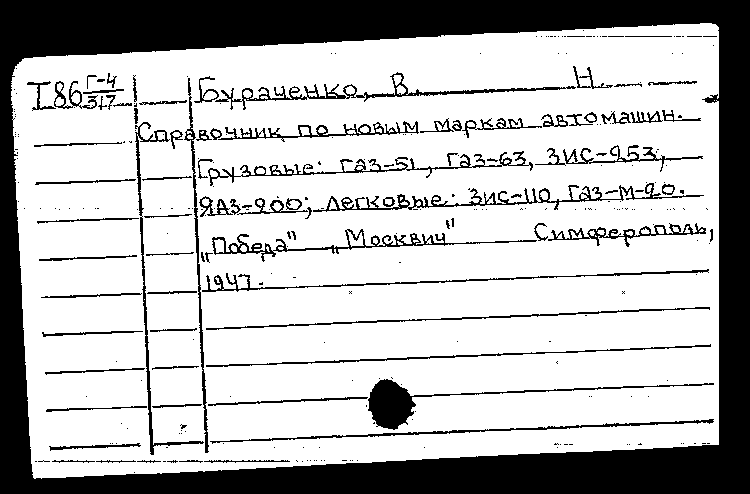 Т86 Г-4/317 Бураченко, В. Н.
Справочник по новым маркам автомашин.
Грузовые: ГАЗ-51, ГАЗ-63, ЗИС-253,
ЯАЗ-200; Легковые: ЗИС-110, ГАЗ-М-20.
„Победа" „Москвич" Симферополь,
1947.